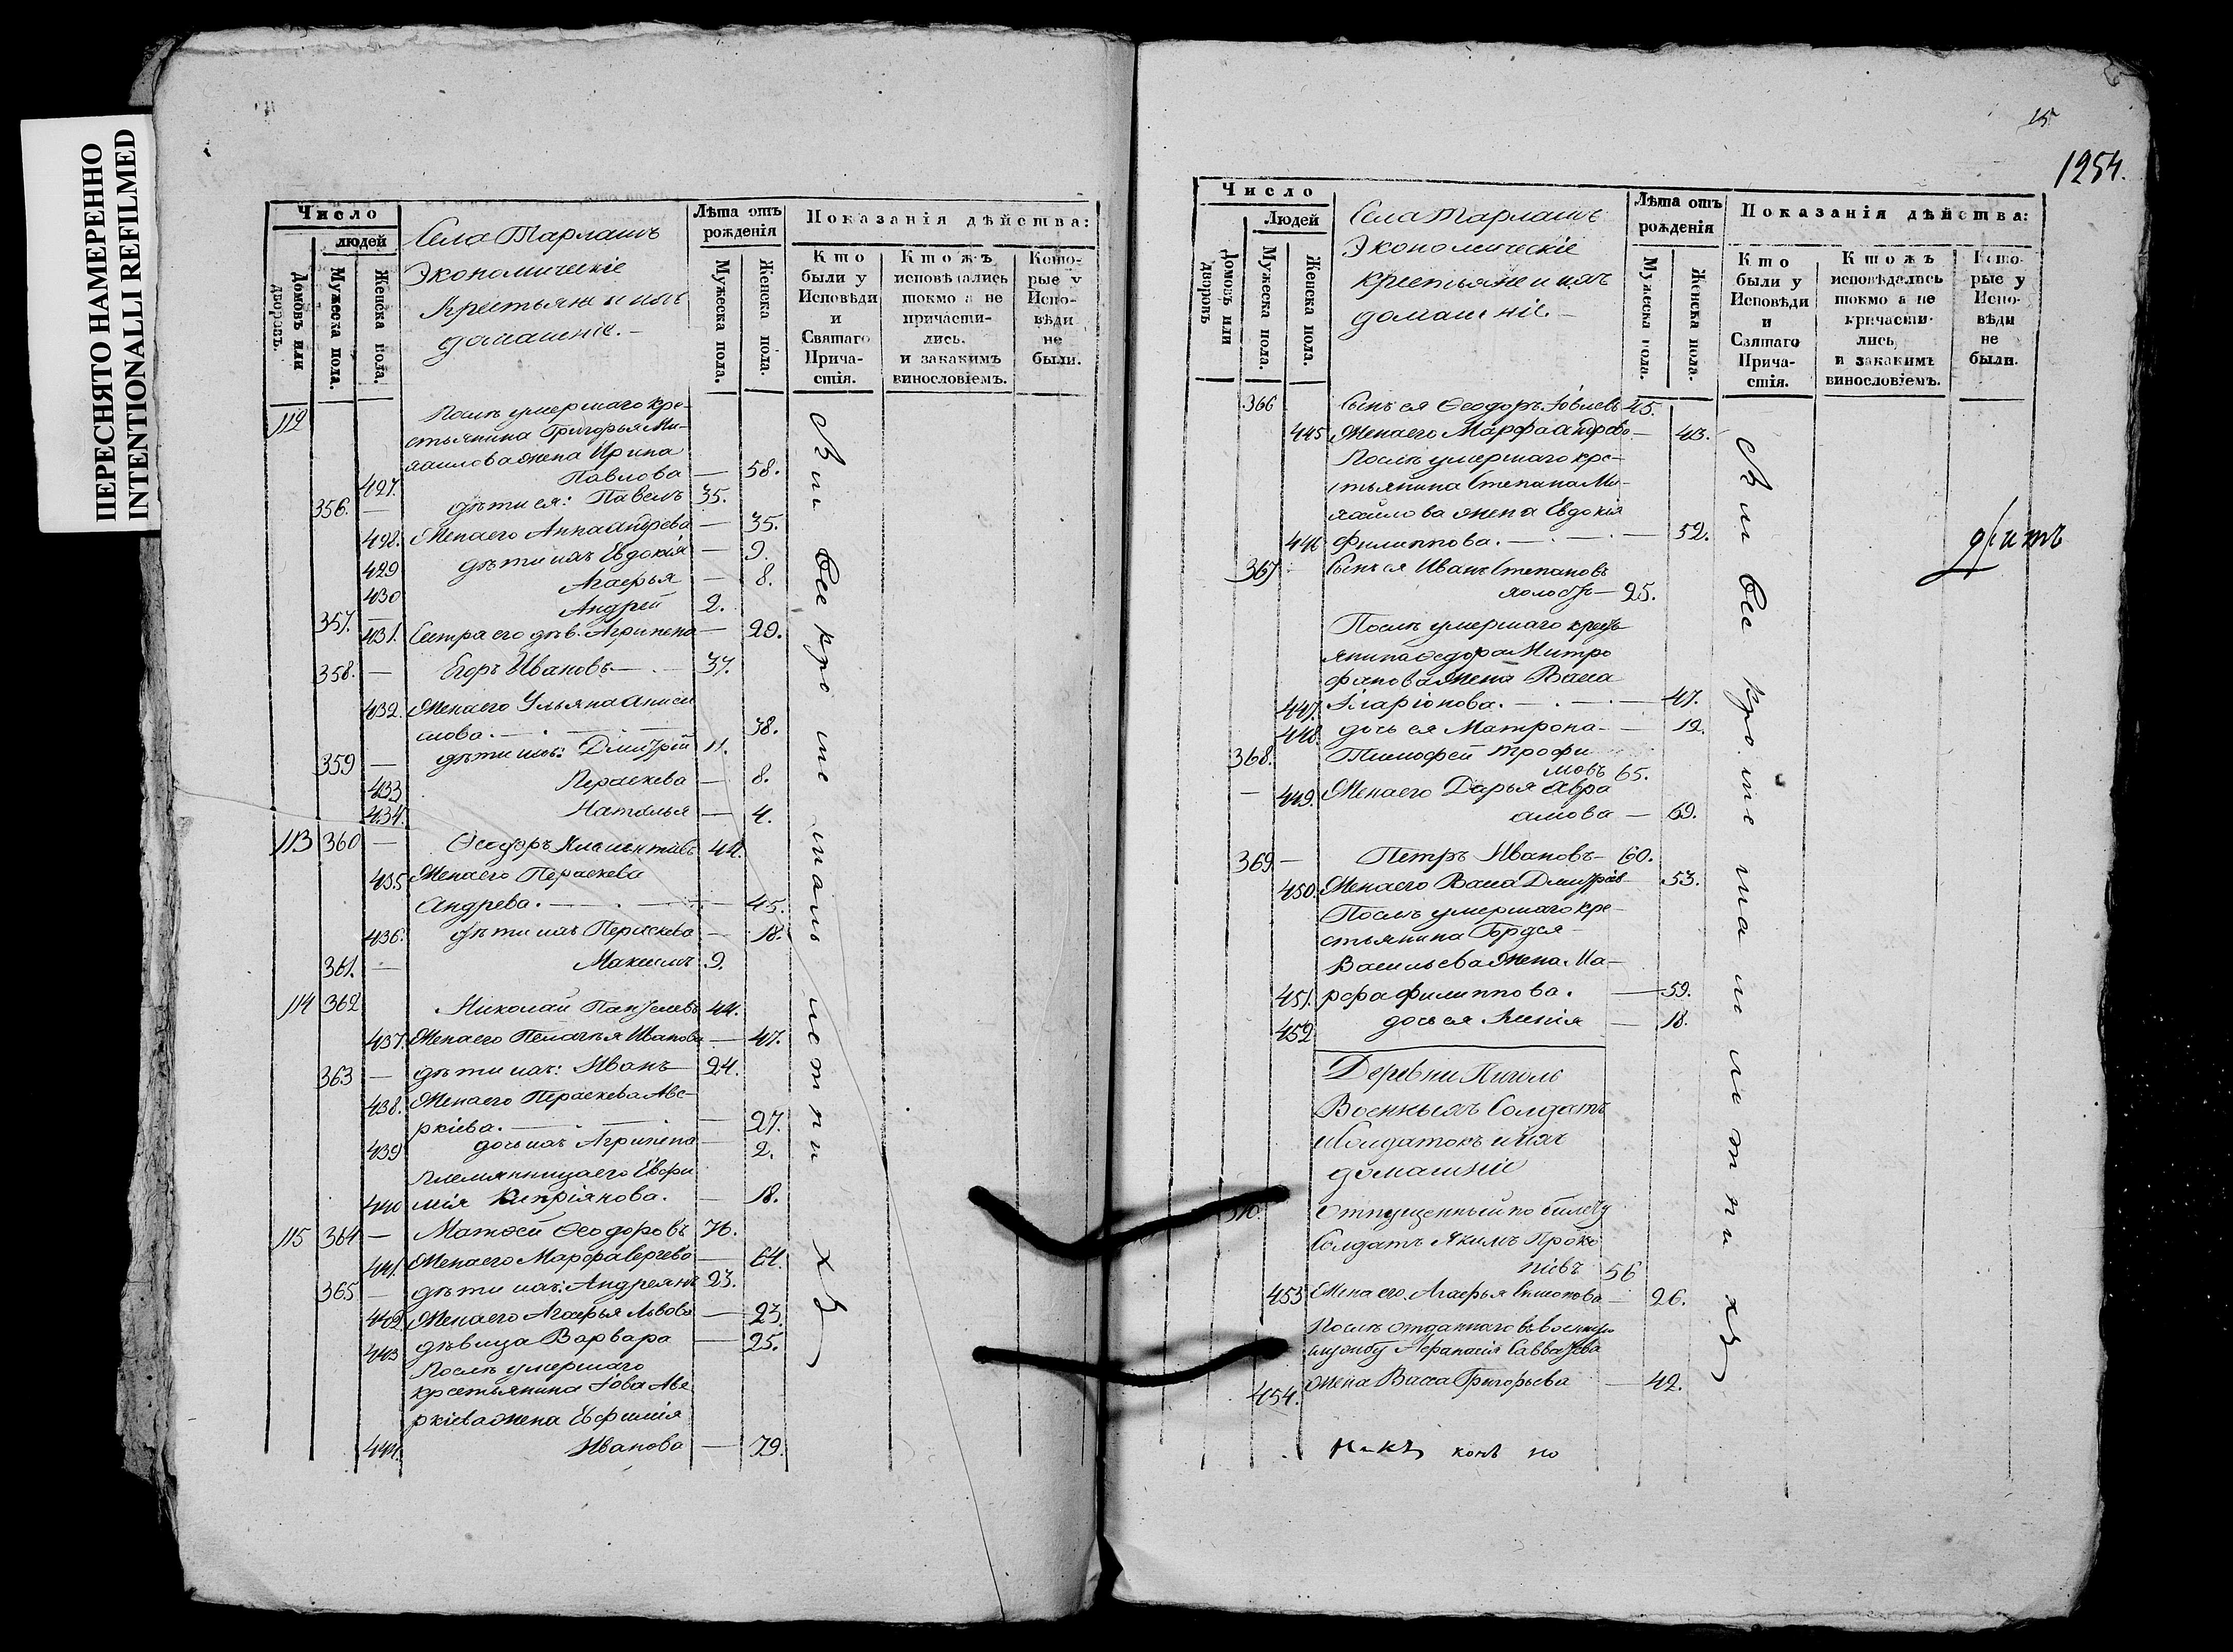 ПЕРЕСНЯТО НАМЕРЕННО
INTENTIONALLI REFILMED
Число
людей
Домовъ или дворовъ.
Мужеска пола.
Женска пола.
Села Тарлашъ
Экономическіе
Крестьяне и ихъ
домашніе.
Лѣта отъ рожденія
Мужеска пола.
Женска пола.
Показанія дѣйства:
Кто были у Исповѣди и Святаго Причастія.
Ктожъ исповѣдались токмо а не причастились. и закакимъ винословіемъ.
Которые у Исповѣди не были.
112 Послѣ умершаго кре-
стьянина Григорья Ми-
хайлова жена Ирина
427. Павлова — 58.
356. — дѣти ея: Павелъ 35.
428. Жена его Анна Андрева — 35.
429 дѣти ихъ Евдокія — 9.
430 Агафья — 8.
357. — Андрей 2.
431. Сестра его дѣв. Агрипена — 29.
358. — Егоръ Ивановъ — 37.
432. Жена его Ульяна Аниси
мова. — 38.
359 — дѣти ихъ: Дмитрій 11.
433 Параскева — 8.
434. Наталья — 4.
113 360 — Ѳеодоръ Климентіевъ 44.
435 Жена его Параскева
Андрева. — 45.
436. дѣти ихъ Параскева — 18.
361. — Максимъ 9.
114 362 Николай Пантелевъ 44.
437. Жена его Пелагъя Иванова — 47.
363 — дѣти ихъ: Иванъ 24.
438. Жена его Параскева Аве-
ркіева. — 27.
439 дочь ихъ Агрипена — 2.
племянница его Евфи
440 мія Кипріянова. — 18.
115 364 — Матѳей Ѳеодоровъ 76.
441. Жена его Марфа Сергева — 64.
365 — дѣти ихъ: Андреянъ 23.
442 Жена его Агафья Львова — 23.
443 дѣвица Варвара — 25.
Послѣ умершаго
крестьянина Іова Аве
ркіева жена Евфимія
444. Иванова — 79.
Сіи все кроме малолетних
15
1254.
Число
Людей
Домовъ или дворовъ
Мужеска пола.
Женска пола.
Села Тарлашъ
Экономическіе
крестьяне и ихъ
домашніе.
Лѣта отъ рожденія
Мужеска пола.
Женска пола.
Показанія дѣйства:
Кто были у Исповѣди и Святаго Причастія.
Ктожъ исповѣдались токмо а не причастились и закакимъ винословіемъ.
Которые у Исповѣди не были.
366 Сынъ ея Ѳеодоръ Іовлевъ 45.
445 Жена его Марфа Андрева — 43.
Послѣ умершаго кре-
стьянина Степана Ми-
хайлова жена Евдокія
446 Филиппова. — 52.
367 Сынъ ея Иванъ Степановъ
холостъ — 25.
Послѣ умершаго кресть
янина Ѳедора Митро
фанова жена Васса
447. Іларіонова. — 47.
448. дочь ея Матрона — 19.
368. Тимофей Трофи
мовъ 65.
— 449. Жена его Дарья Авра
амова — 69.
369 — Петръ Ивановъ — 60.
450. Жена его Васса Дмитріев — 53.
Послѣ умершаго кре-
стьянина Гордея
Васильева жена Ма-
451. рфа Филиппова. — 59.
452 дочь ея Ксенія — 18.
Деревни
Военныхъ Солдатъ
и Солдатокъ и ихъ
домашніе
370. Отпущенный по билету
Солдатъ Якимъ Проко
піевъ 56
453 Жена его Агафья Симонова — 26.
Послѣ отданнаго въ военную
службу Афанасія Савватѣева
454. жена Васса Григорьева — 42.
Сіи все кроме малолетних